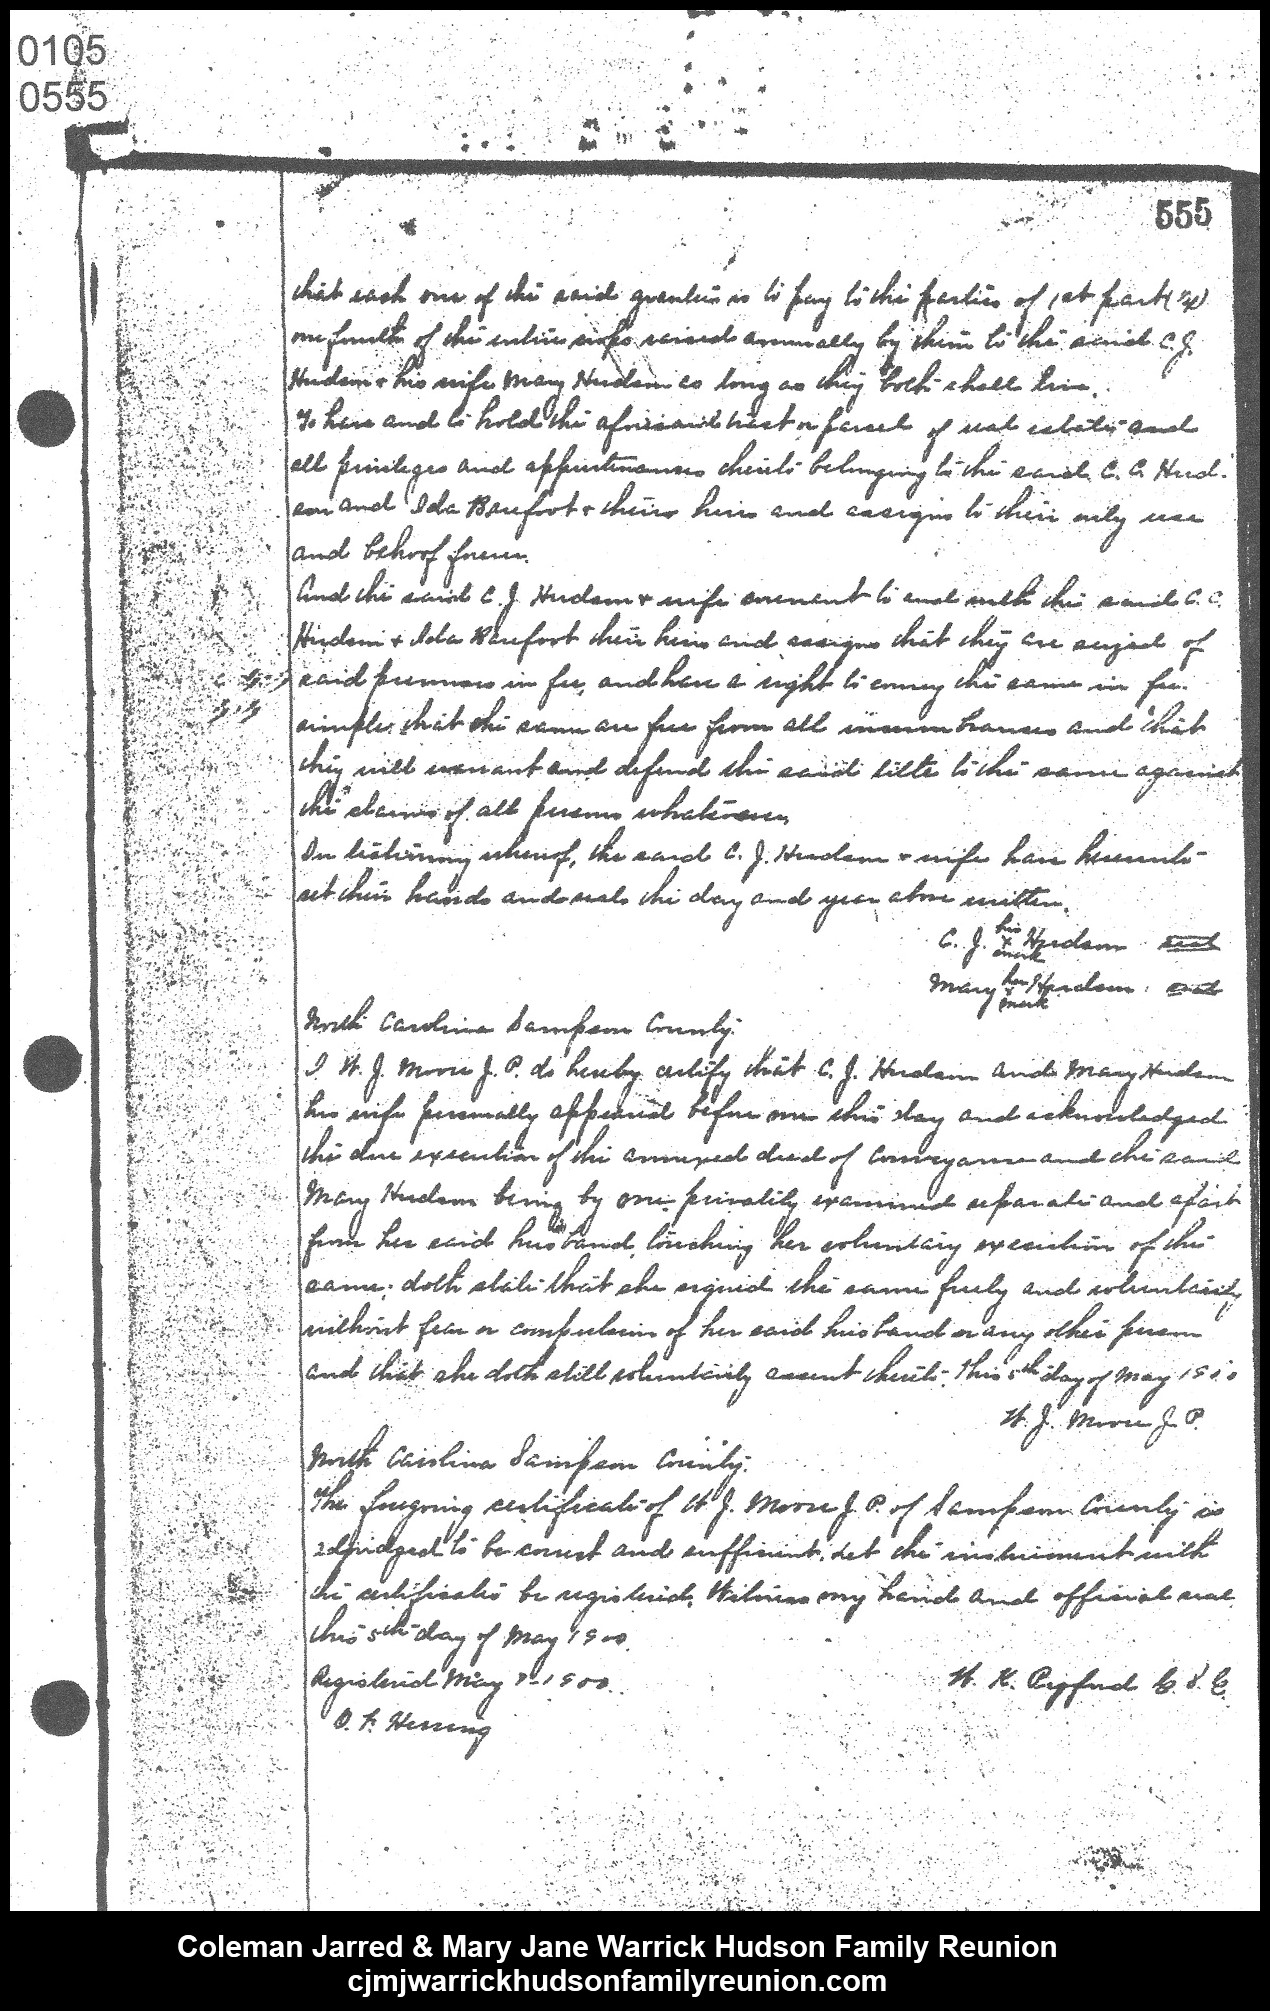 0105
0555
555
that each one of the said grantees is to pay to the parties of 1st part (1/4)
one fourth of the entire crops raised annually by them to the said C. J.
Hudson & his wife Mary Hudson as long as they both shall live.
To have and to hold the aforesaid tract or parcel of real estate and
all privileges and appurtenances thereto belonging to the said C. C. Hud-
son and Ida Barefoot & theirs heirs and assigns to their only use
and behoof forever.
And the said C. J. Hudson & wife covenant to and with the said C. C.
Hudson & Ida Barefoot their heirs and assigns that they are seized of
said premises in fee, and have a right to convey the same in fee
simple; that the same are free from all incumbrances and that
they will warrant and defend the said title to the same against
the claims of all persons whatsoever.
In testimony whereof, the said C. J. Hudson & wife have hereunto
set their hands and seals the day and year above written.
C. J. his x mark Hudson seal
Mary her x mark Hudson seal
North Carolina Sampson County.
I W. J. Moore J. P. do hereby certify that C. J. Hudson and Mary Hudson
his wife personally appeared before me this day and acknowledged
the due execution of the annexed deed of conveyance and the said
Mary Hudson being by me privately examined separate and apart
from her said husband, touching her voluntary execution of the
same; doth state that she signed the same freely and voluntarily
without fear or compulsion of her said husband or any other person
and that she doth still voluntarily assent thereto. This 5th day of May 1900
W. J. Moore J. P.
North Carolina Sampson County.
The foregoing certificate of W. J. Moore J. P. of Sampson County is
adjudged to be correct and sufficient. Let the instrument with
the certificates be registered. Witness my hand and official seal
this 5th day of May 1900.
Registered May 1900. W. K. Pigford C. S. C.
O. F. Herring
Coleman Jarred & Mary Jane Warrick Hudson Family Reunion
cjmjwarrickhudsonfamilyreunion.com